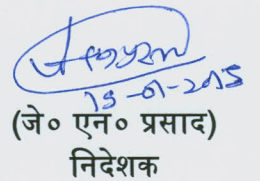 15-01-2015
(जे० एन० प्रसाद)
निदेशक